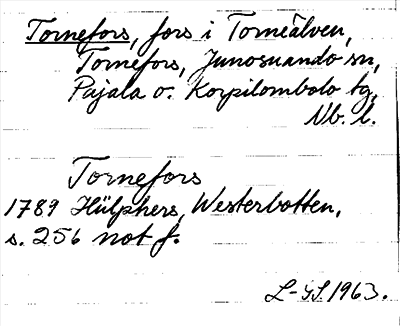 Tornefors, fors i Torneälven,
Tornefors, Junosuando sn,
Pajala o. Korpilombolo tg,
Nb. l.
Tornefors
1789 Hülphers, Westerbotten,
s. 256 not f.
L-GS. 1963.